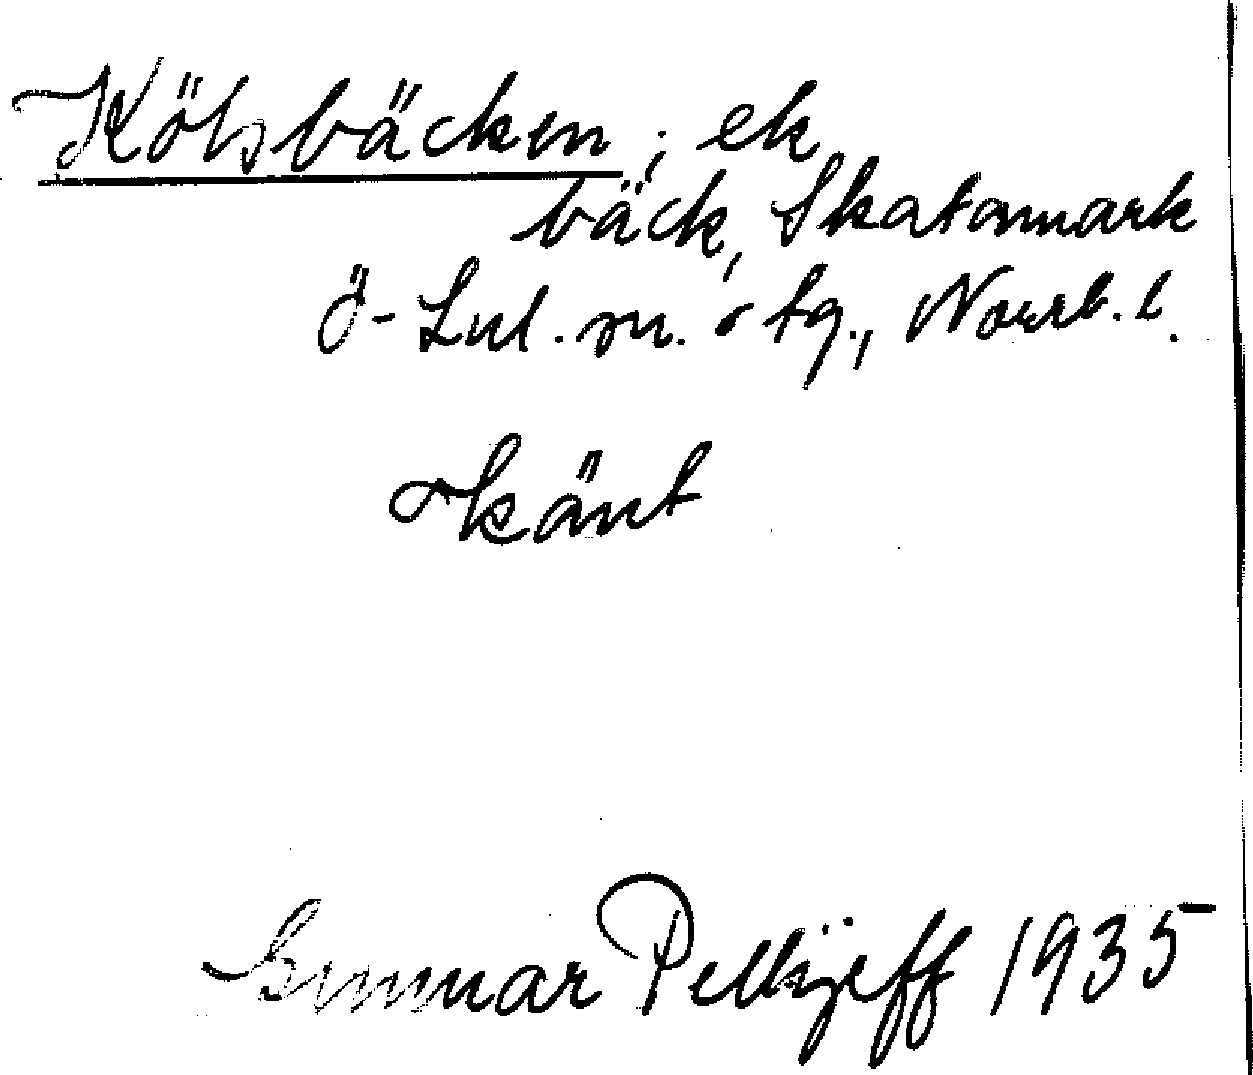 Kölsbäcken; ek
bäck, Skatamark
Ö-Lul. sn. o tg., Norrb. l.
okänt
Gunnar Pellijeff 1935